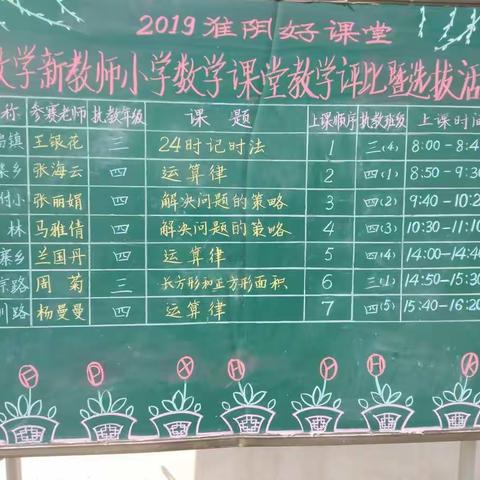 2019淮阴好课堂
学新教师小学数学课堂教学评比暨选拔活
称 参赛老师 执教年级 课题 上课顺序 执教班级 上课时间
镇 王银花 三 24时记时法 1 三(4) 8:00-8:4
乡 张海云 四 运算律 2 四(1) 8:50-9:3
附小 张丽娟 四 解决问题的策略 3 四(2) 9:40-10:2
林 马雅倩 四 解决问题的策略 4 四(3) 10:30-11:1
寨乡 兰国丹 四 运算律 5 四(4) 14:00-14:4
京路 周菊 三 长方形和正方形面积 6 三(1) 14:50-15:3
川路 杨曼曼 四 运算律 7 四(5) 15:40-16:20
P X H Y H K